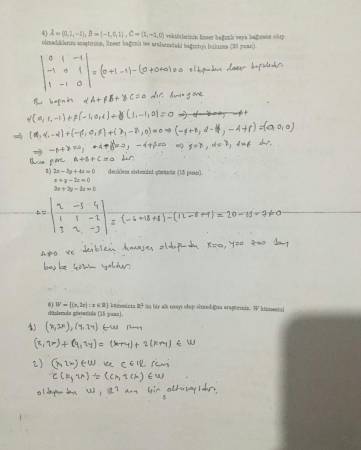 4) A = (0, 1, −1), B = (−1, 0, 1), C = (1, −1, 0) vektörlerinin lineer bağımlı veya bağımsız olup
olmadıklarını araştırınız, lineer bağımlı ise aralarındaki bağıntıyı bulunuz (20 puan).
| 0 1 -1 |
| -1 0 1 | = (0+1-1)-(0+0+0)=0 olduğundan lineer bağımlıdır.
| 1 -1 0 |
Bu bağıntı αA+βB+γC=0 dır. Buna göre
α(0,1,-1)+β(-1,0,1)+γ(1,-1,0)=0
⇒ (0,α,-α)+(-β,0,β)+(γ,-γ,0)=0 ⇒ (-β+γ, α-γ, -α+β)=(0,0,0)
⇒ -β+γ=0, α-γ=0, -α+β=0 ⇒
Buna göre A+B+C=0 dır.
5) 2x − 3y + 4z = 0 denklem sistemini çözünüz (15 puan).
x + y − 2z = 0
3x + 2y − 3z = 0
Δ = | 2 -3 4 |
| 1 1 -2 | = (-6+18+8)-(12-8+9) = 20-13=7≠0
| 3 2 -3 |
Δ≠0 ve denklem homojen olduğundan x=0, y=0 z=0 dan
başka çözüm yoktur.
6) W = {(x, 2x) : x ∈ R} kümesinin R² nin bir alt uzayı olup olmadığını araştırınız. W kümesini
düzlemde gösteriniz (15 puan).
1) (x,2x), (y,2y) ∈ W için
(x,2x)+(y,2y)=(x+y)+2(x+y) ∈ W
2) (x,2x) ∈ W ve c ∈ R için
c(x,2x)=(cx,2cx) ∈ W
olduğundan W, R² nin bir altuzayıdır.